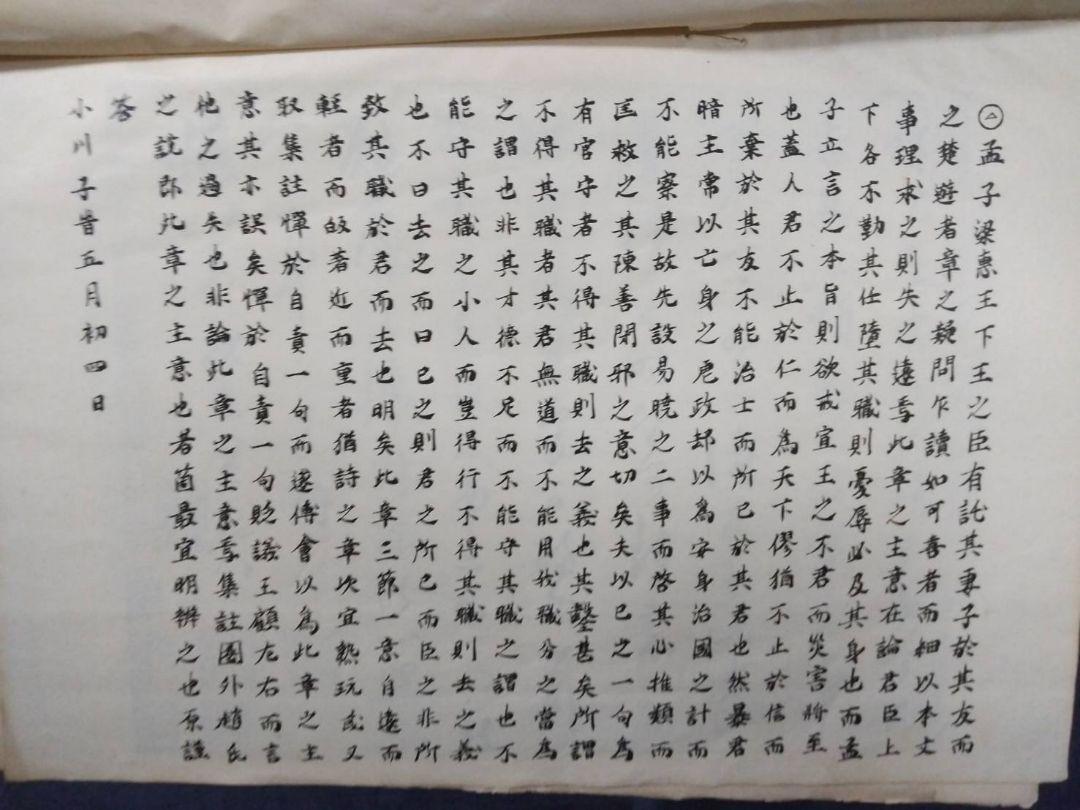 ㊁孟子梁惠王下王之臣有託其妻子於其友而
之楚遊者章之疑問乍讀如可喜者而細以本文
事理求之則失之遠焉此章之主意在論君臣上
下各不勤其任墮其職則憂辱必及其身也而孟
子立言之本旨則欲戒宣王之不君而災害將至
也蓋人君不止於仁而為天下僇猶不止於信而
所棄於其友不能治士而所已於其君也然暴君
暗主常以亡身之危政却以為安身治國之計而
不能察是故先設易曉之二事而啓其心推類而
匡救之其陳善閉邪之意切矣夫以已之一句為
有官守者不得其職則去之義也其鑿甚矣所謂
不得其職者其君無道而不能用我職分之當為
之謂也非其才德不足而不能守其職之謂也不
能守其職之小人而豈得行不得其職則去之義
也不曰去之而曰已之則君之所已而臣之非所
致其職於君而去也明矣此章三節一意自遠而
輕者而皈著近而重者猶詩之章次宜熟玩焉又
取集註憚於自責一句而遂傅會以為此章之主
意其亦誤矣憚於自責一句貶議王顧左右而言
他之過失也非論此章之主意焉集註圈外趙氏
之說即此章之主意也若箇最宜明辨之也原謹
答
小川子晋五月初四日